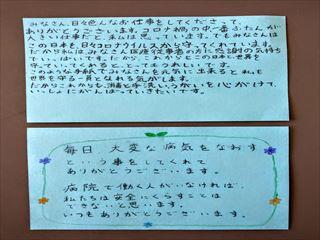 みなさん、日々色んなお仕事をしてくださって、
ありがとうございます。コロナ禍の中一番ふたんが
大きい仕事だと、私は思っています。でもみなさんは
この日本を、日々コロナウイルスから守ってくれています。
だから私はみなさん医療従事者の方に感謝の気持ち
でいっぱいです。だから、これからもこの日本と世界を
守っていってくれると、とってもうれしいです。
このような手紙でみなさんを元気に出来ると私も
世界を守る一員となれる気がします。
だからこれからも消毒と手洗いうがいを心がけて、
いっしょにがんばっていきたいです。
毎日 大変な病気をなおす
という事をしてくれて
ありがとうございます。
病院で働く人がいなければ、
私たちは安全にくらすことは
できないと思います。
いつもありがとうございます。